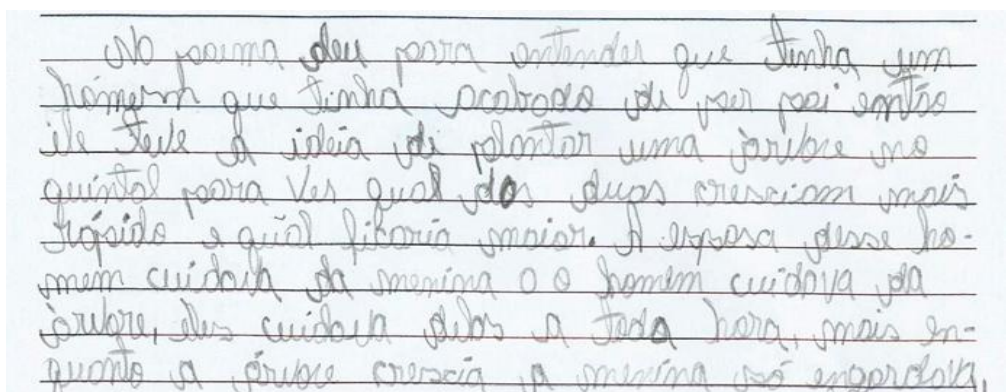 No poema deu para entender que tinha um
hómem que tinha acabado de ser pai então
ele teve a idéia de plantar uma árvore no
quintal para ver qual das duas cresciam mais
rápido e quál ficaria maior. A esposa desse ho-
mem cuidava da menina e o homem cuidava da
árvore, eles cuidava delas a toda hora, mais en-
quanto a árvore crescia, a menina só engordava,